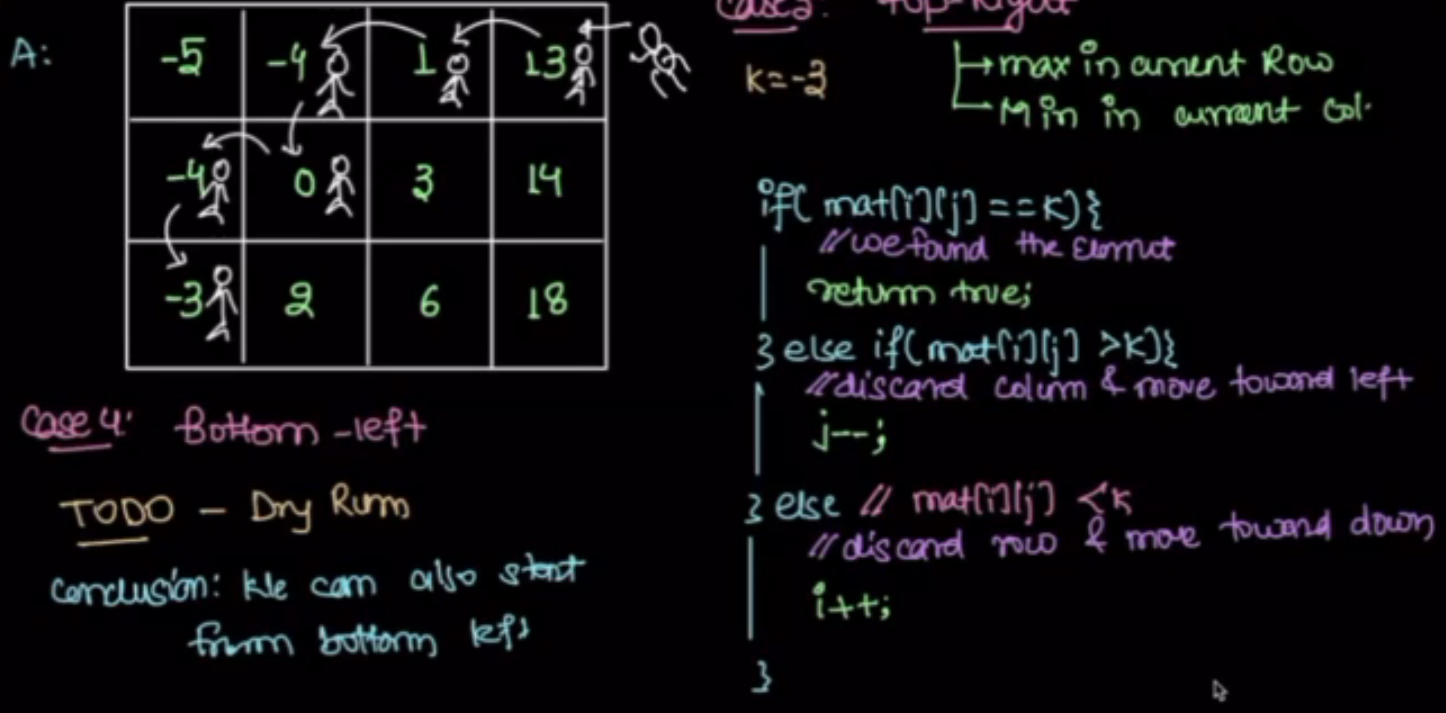 A:
-5 -4 1 13
-4 0 3 14
-3 2 6 18
Case 4: Bottom-left
TODO - Dry Run
Conclusion: We can also start
from bottom left
Top-Right
K=-3
→max in current Row
Min in current Col.
if( mat[i][j] ==K){
//we found the Elemnt
return true;
}else if(mat[i][j] >K){
//discard colum & move toward left
j--;
}else // mat[i][j] <K
//discard row & move toward down
i++;
}